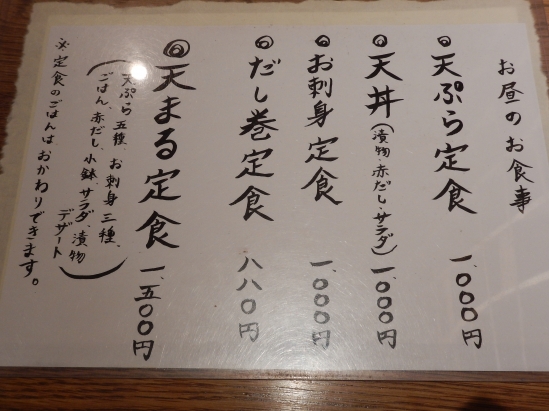 お昼のお食事
◎天ぷら定食 一、〇〇〇円
◎天丼(漬物・赤だし・サラダ) 一、〇〇〇円
◎お刺身定食 一、〇〇〇円
◎だし巻定食 八八〇円
◎天まる定食 一、五〇〇円
(天ぷら五種、お刺身三種、
ごはん、赤だし、小鉢、サラダ、漬物
デザート)
※定食のごはんはおかわりできます。